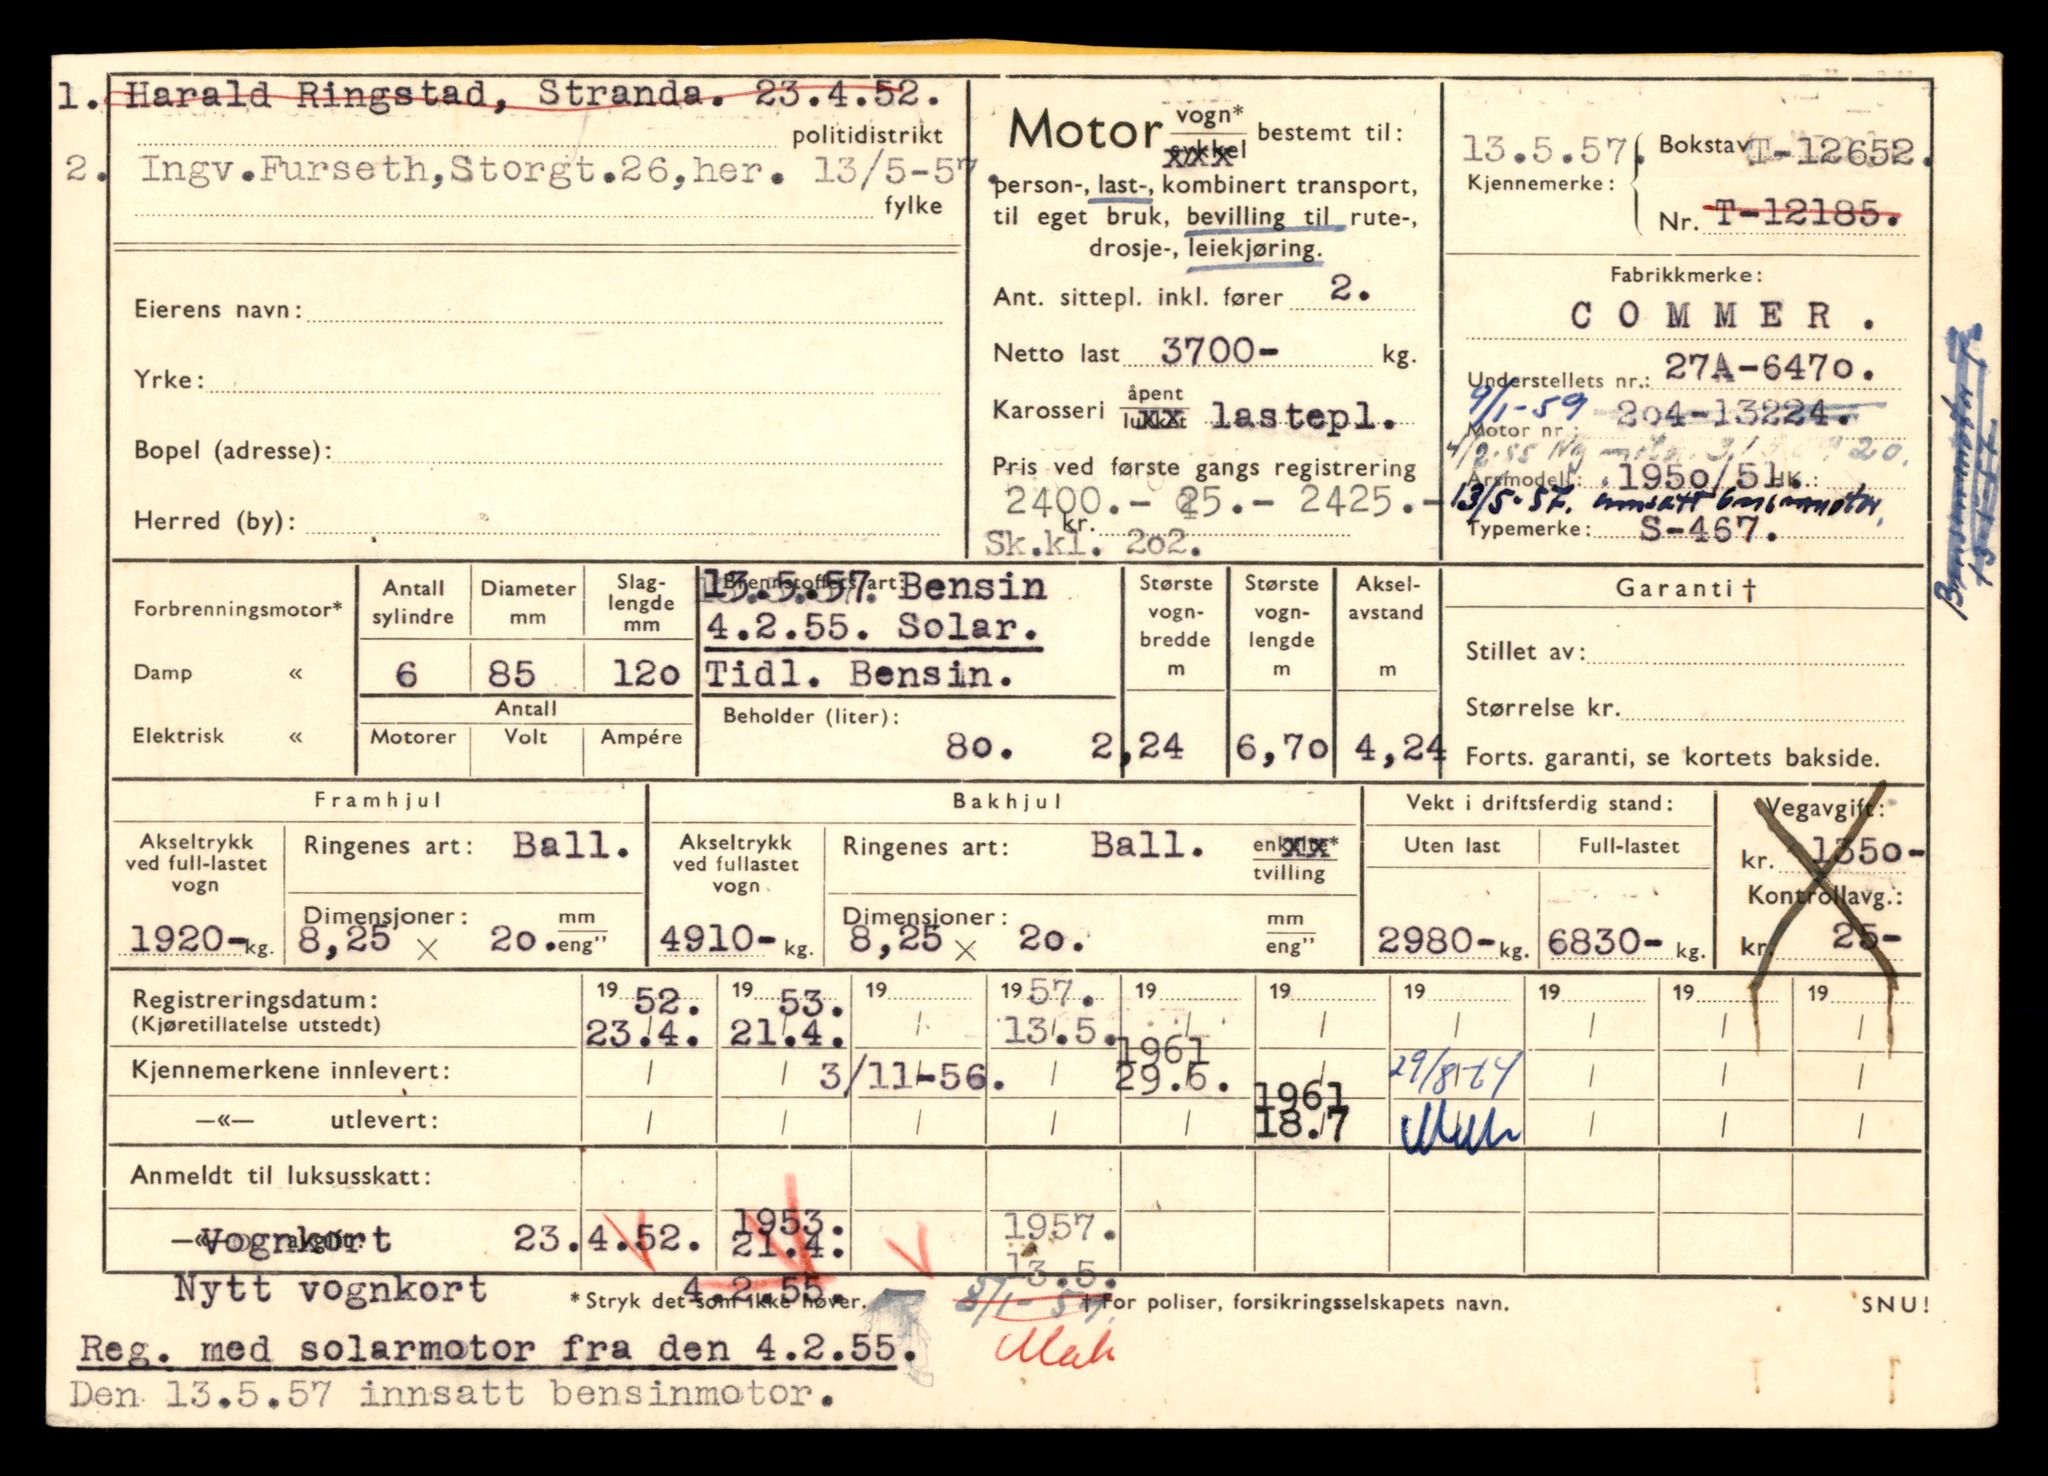 1. Harald Ringstad, Stranda. 23.4.52.
politidistrikt
2. Ingv.Furseth,Storgt.26,her. 13/5-57.
fylke
Eierens navn:
Yrke:
Bopel (adresse):
Herred (by):
Motor vogn* sykkel bestemt til:
person-, last-, kombinert transport,
til eget bruk, bevilling til rute-,
drosje-, leiekjøring.
Ant. sittepl. inkl. fører 2.
Netto last 3700- kg.
Karosseri åpent lukket lastepl.
Pris ved første gangs registrering
2400.- 25.- 2425.-
kr.
Sk.kl. 202.
13.5.57. Bokstav T-12652.
Kjennemerke:
Nr. T-12185.
Fabrikkmerke:
COMMER.
Understellets nr.: 27A-6470.
9/1-59 204-13224.
Motor nr.:
4/2-55 Ny motor
Årsmodell: 1950/51. HK.:
13/5-57. innsatt bensinmotor.
Typemerke: S-467.
Forbrenningsmotor*
Damp «
Elektrisk «
Antall sylindre
Diameter mm
Slaglengde mm
6 85 120
Antall
Motorer Volt Ampére
Brennstoffets art:
13.5.57. Bensin
4.2.55. Solar.
Tidl. Bensin.
Beholder (liter):
80.
Største vognbredde m
2,24
Største vognlengde m
6,70
Akselavstand m
4,24
Garanti †
Stillet av:
Størrelse kr.
Forts. garanti, se kortets bakside.
Framhjul
Akseltrykk ved full-lastet vogn
1920- kg.
Ringenes art: Ball.
Dimensjoner: mm
8,25 × 20. eng"
Bakhjul
Akseltrykk ved fullastet vogn
4910- kg.
Ringenes art: Ball. enkelte* tvilling
Dimensjoner: mm
8,25 × 20. eng"
Vekt i driftsferdig stand:
Uten last Full-lastet
2980- kg. 6830- kg.
Vegavgift:
kr. 1350-
Kontrollavg.:
kr. 25-
Registreringsdatum: 19 52. 19 53. 19 19 57. 19 19 19 19 19 19
(Kjøretillatelse utstedt) 23.4. 21.4. 13.5.
1961
Kjennemerkene innlevert: 3/11-56. 29.6. 29/8-64
1961
—«— utlevert: 18.7
Anmeldt til luksusskatt:
1953. 1957.
—«— Vognkort 23.4.52. 21.4. 13.5.
Nytt vognkort 4.2.55. 8/1-59
* Stryk det som ikke høver.
† For poliser, forsikringsselskapets navn.
SNU!
Reg. med solarmotor fra den 4.2.55.
Den 13.5.57 innsatt bensinmotor.